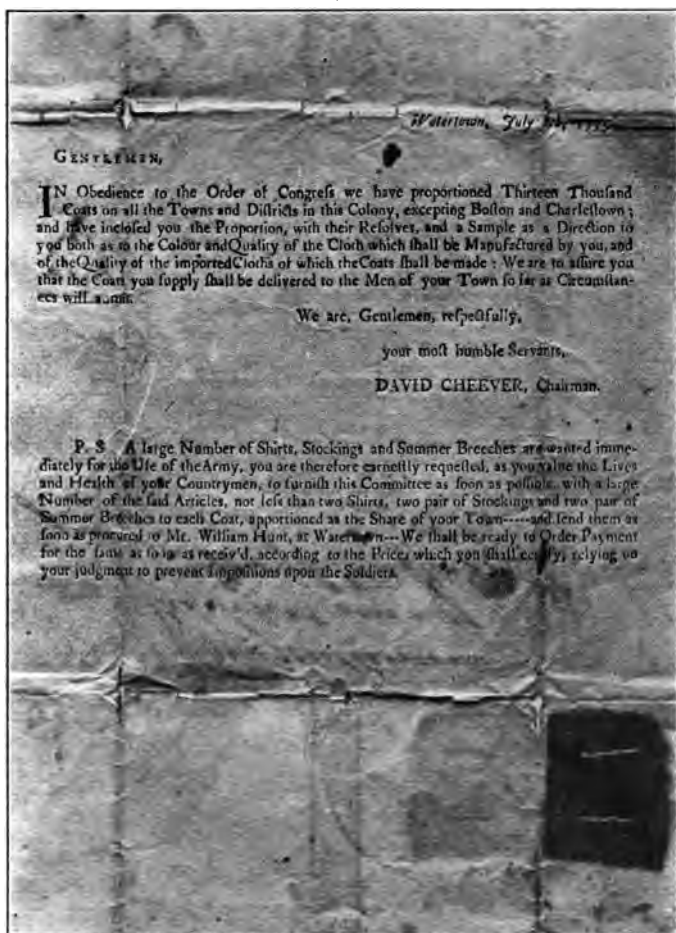 Watertown, July
GENTLEMEN,
IN Obedience to the Order of Congreſs we have proportioned Thirteen Thouſand
Coats on all the Towns and Diſtricts in this Colony, excepting Boſton and Charleſtown ;
and have incloſed you the Proportion, with their Reſolves, and a Sample as a Direction to
you both as to the Colour and Quality of the Cloth which ſhall be Manufactured by you, and
of the Quality of the imported Cloths of which the Coats ſhall be made : We are to aſſure you
that the Coats you ſupply ſhall be delivered to the Men of your Town ſo far as Circumſtan-
ces will admit.
We are, Gentlemen, reſpectfully,
your moſt humble Servants,
DAVID CHEEVER, Chairman.
P. S A large Number of Shirts, Stockings and Summer Breeches are wanted imme-
diately for the Uſe of the Army, you are therefore earneſtly requeſted, as you value the Lives
and Health of your Countrymen, to furniſh this Committee as ſoon as poſſible, with a large
Number of the ſaid Articles, not leſs than two Shirts, two pair of Stockings and two pair of
Summer Breeches to each Coat, apportioned as the Share of your Town-----and ſend them as
ſoon as procured to Mr. William Hunt, at Watertown---We ſhall be ready to Order Payment
for the ſame as ſoon as receiv'd, according to the Prices which you ſhall certify, relying on
your judgment to prevent Impoſitions upon the Soldiers.